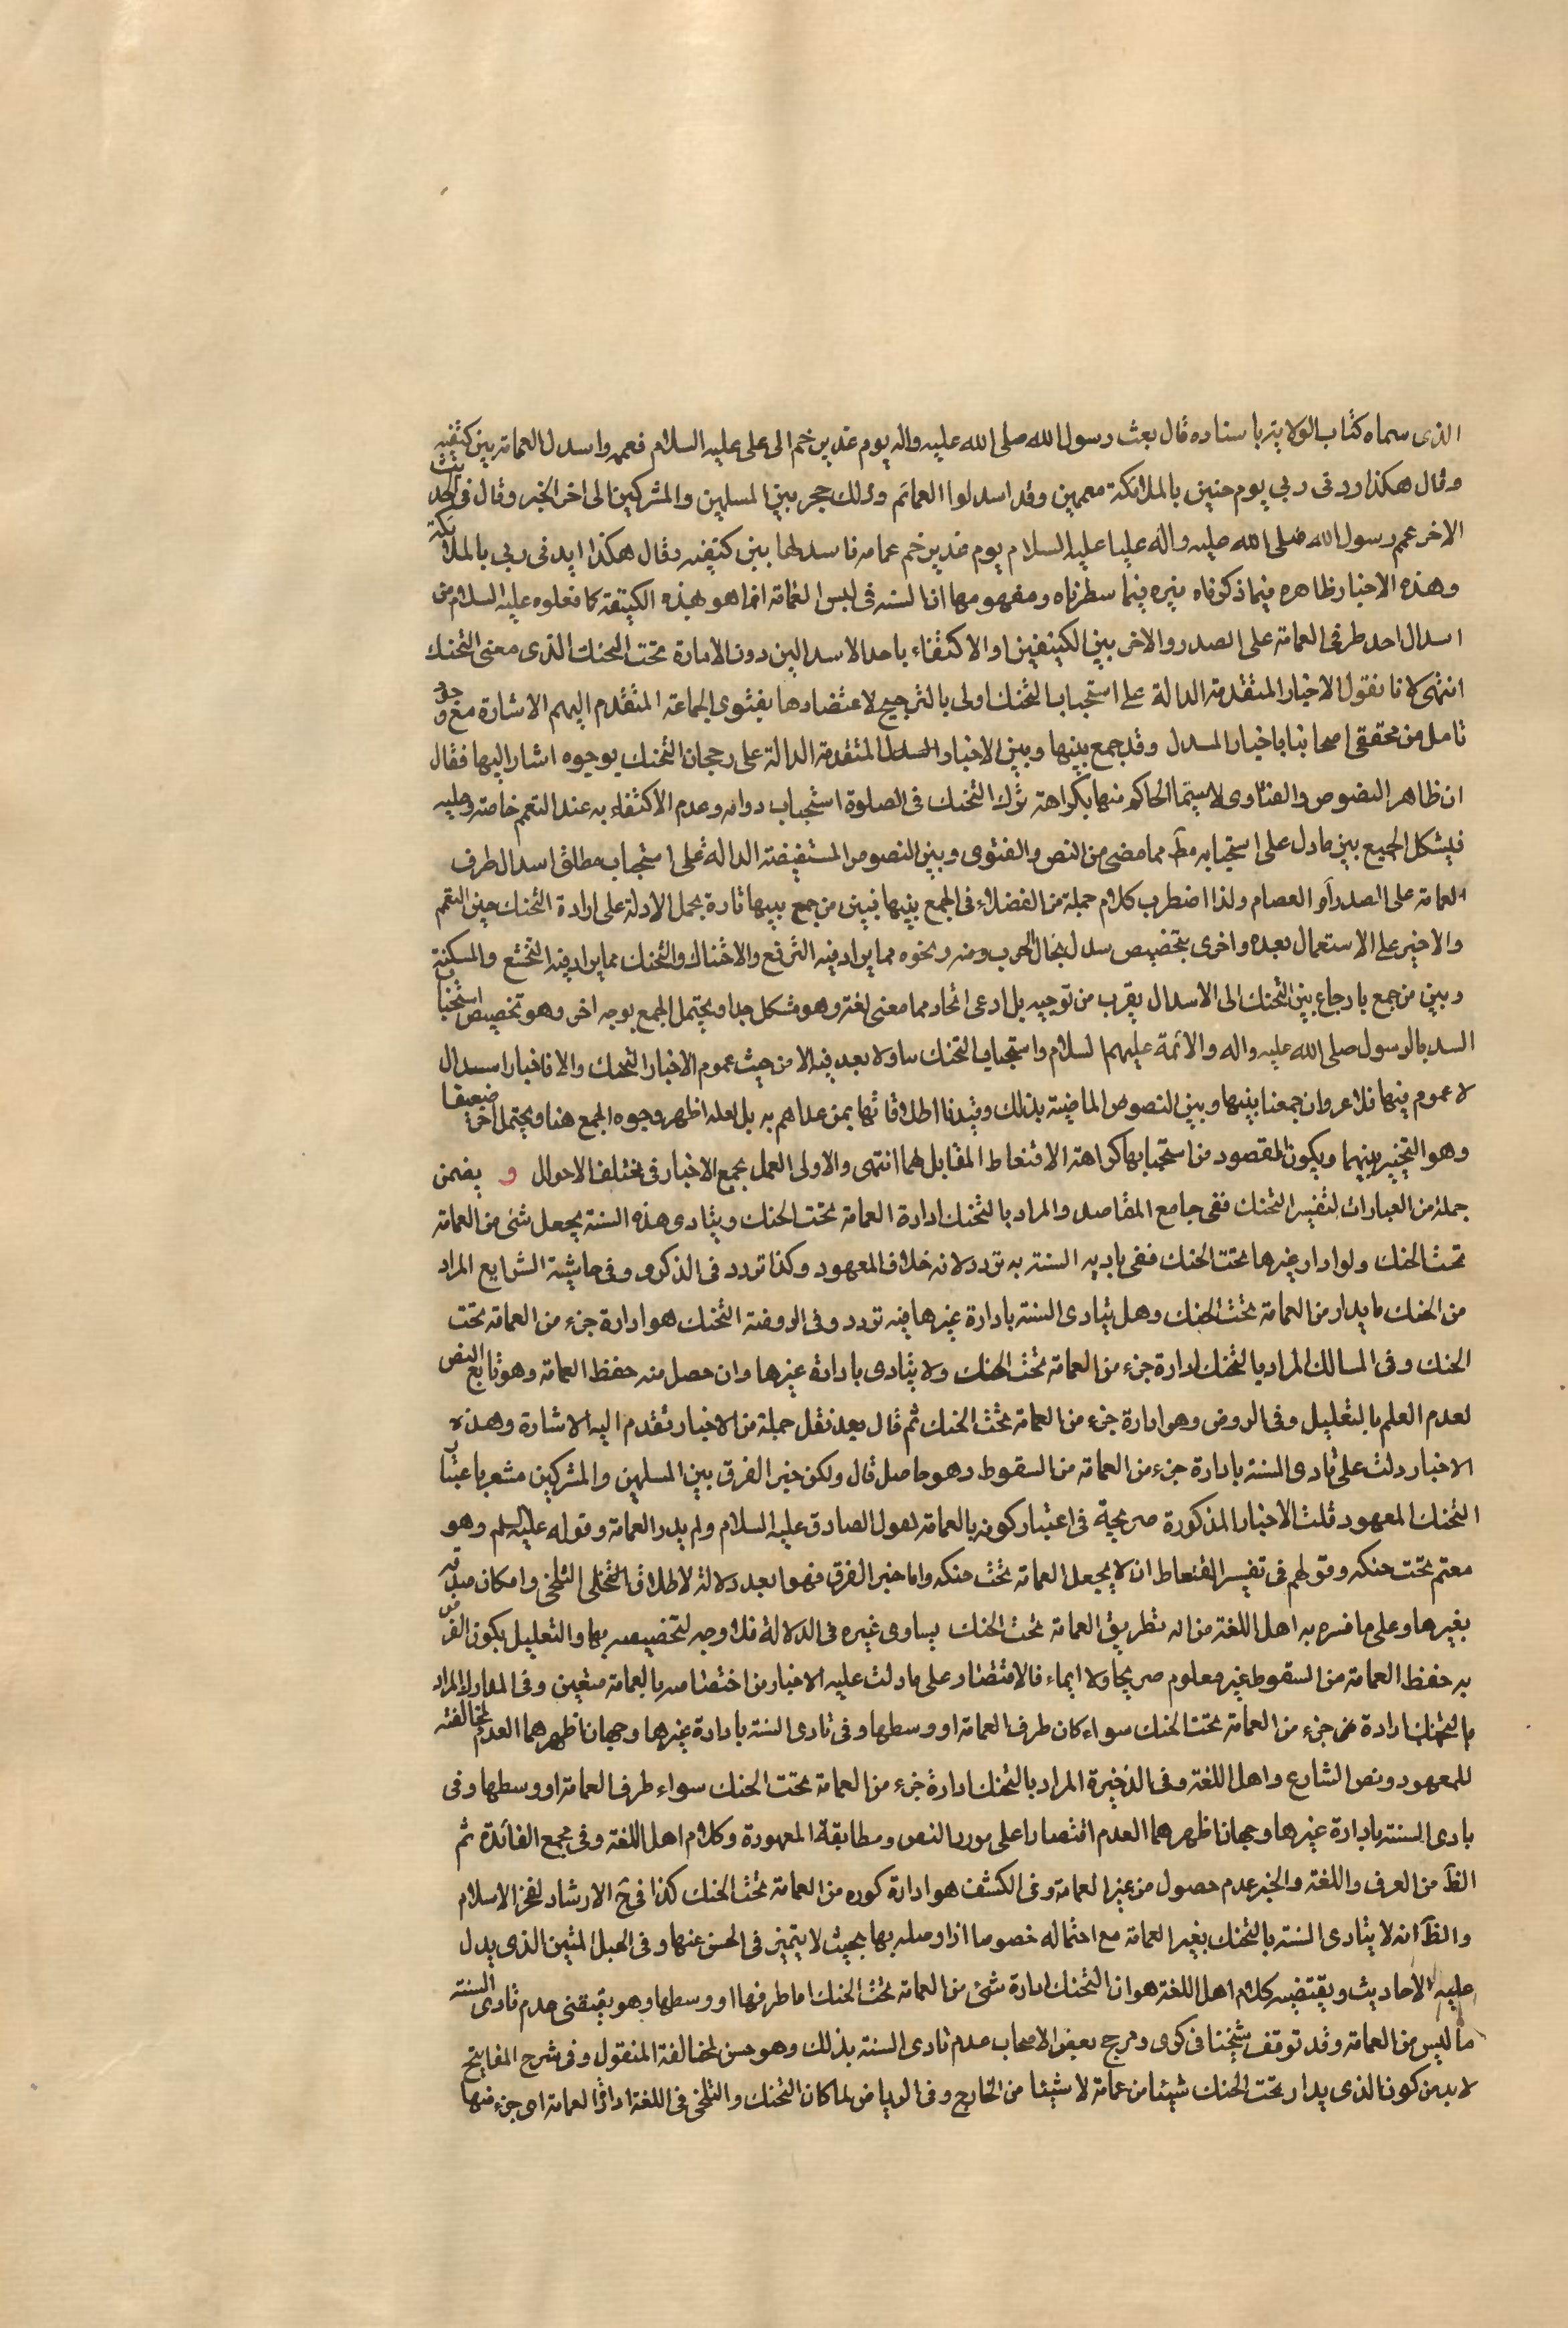 الذى سماه كتاب الولاية باسناده قال بعث رسول الله صلى الله عليه واله يوم غدير خم الى على عليه السلام فعممه واسدل العمامة بين كتفيه
وقال هكذا ايدنى ربي يوم حنين بالملائكة معممين وقد اسدلوا العمائم وذلك حجر بين المسلمين والمشركين الى اخر الخبر وقال فى الحديث
الاخر عمم رسول الله صلى الله عليه واله عليا عليه السلام يوم غدير خم عمامه فاسدلها بين كتفيه وقال هكذا ايدنى ربي بالملائكة
وهذه الاخبار ظاهره فيما ذكرناه نيره فيما سطرناه ومفهومها ان السنه فى لبس العمامة انما هو بهذه الكيفية كما فعلوه عليه السلام من
اسدال احد طرفى العمامة على الصدر والاخر بين الكتفين او الاكتفاء باحد الاسدالين دون الادارة تحت الحنك الذى معنى التحنك
انتهى لانا نقول الاخبار المتقدمة الدالة على استحباب التحنك اولى بالترجيح لاعتضادها بفتوى الجماعة المتقدم اليهم الاشارة مع
تامل من محققى اصحابنا باخبار السدل وقد جمع بينها وبين الاخبار المتقدمة الدالة على رجحان التحنك بوجوه اشار اليها فقال
ان ظاهر النصوص والفتاوى لاسيما الحاكم منها بكراهة ترك التحنك فى الصلوة استحباب دوامه وعدم الاكتفاء به عند التعمم خاصة وعليه
فيشكل الجمع بين ما دل على استحبابه مط مما مضى من النص والفتوى وبين النصوص المستفيضة الداله على استحباب مطلق اسدال طرف
العمامة على الصدر او العصام ولذا اضطرب كلام جملة من الفضلاء فى الجمع بينها فبين من جمع بينها تارة بحمل الادلة على ارادة التحنك حين التعمم
والاخير على الاستعمال بعده واخرى بتخصيص سدل بحال الحرب ونحوه مما يراد فيه الترفع والاختيال والتحنك مما يراد فيه التخشع والمسكنة
وبين من جمع بارجاع بين التحنك الى الاسدال بقرب من توجيه بل ادعى اتحادهما معنى لغة وهو مشكل جدا ويحتمل الجمع بوجه اخر وهو تخصيص استحباب
السدل بالرسول صلى الله عليه واله والائمة عليهم السلام واستحباب التحنك بنا ولا بعد فيه الا من حيث عموم الاخبار التحنك والا فاخبار اسدال
لا عموم فيها فلا عبر وان جمعنا بينها وبين النصوص الماضية بذلك وقيدنا اطلاقاتها بمن عداهم به بل لعله اظهر وجوه الجمع هنا ويحتمل اخر ضعيفا
وهو التخيير بينهما ويكون المقصود من استحبابها كراهة الاقتعاط المقابل لهما انتهى والاولى العمل بجمع الاخبار فى مختلف الاحوال و يضمن
جملة من العبارات لتفسير التحنك ففى جامع المقاصد والمراد بالتحنك ادارة العمامة تحت الحنك ويتادى هذه السنة بجعل شئ من العمامة
تحت الحنك ولو ادار غيرها تحت الحنك ففى تاديه السنة به تردد لانه خلاف المعهود وكذا تردد فى الذكرى وفى حاشية الشرايع المراد
من الحنك ما يدار من العمامة تحت الحنك وهل يتادى السنة بادارة غيرها فيه تردد وفى الروضة التحنك هو ادارة جزء من العمامة تحت
الحنك وفى المسالك المراد بالتحنك ادارة جزء من العمامة تحت الحنك ولا يتادى بادارة غيرها وان حصل منه حفظ العمامة وهو تابع النص
لعدم العلم بالتعليل وفى الروض وهو ادارة جزء من العمامة تحت الحنك ثم قال بعد نقل جملة من الاخبار تقدم اليه الاشارة وهذه
الاخبار دلت على تادى السنة بادارة جزء من العمامة من السقوط وهو حاصل قال ولكن خبر الفرق بين المسلمين والمشركين مشعر باعتبار
التحنك المعهود قلت الاخبار المذكورة صريحة فى اعتبار كونه بالعمامة لقول الصادق عليه السلام ولم يدر العمامة وقوله عليه السلم وهو
معتم تحت حنكه وقولهم فى تفسير اقتعاط ان لا يجعل العمامة تحت حنكه واما خبر الفرق فهو ابعد دلالة لاطلاق التحلى التلحى وامكان صدقه
بغيرها وعلى ما فسره به اهل اللغة من انه تطريق العمامة تحت الحنك يساوى غيره فى الدلالة فلا وجه لتخصيصه بها والتعليل بكون الغرض
به حفظ العمامة من السقوط غير معلوم صريحا ولا ايماء فالاقتصار على ما دلت عليه الاخبار من اختصاصه بالعمامة متعين وفى المدارك المراد
بالتحنك ادارة جزء من العمامة تحت الحنك سواء كان طرف العمامة او وسطها وفى تادى السنة بادارة غيرها وجهان اظهرهما العدم لمخالفته
للمعهود ونص الشارع واهل اللغة وفى الذخيرة المراد بالتحنك ادارة جزء من العمامة تحت الحنك سواء طرف العمامة او وسطها وفى
بادى السنة بادارة غيرها وجهان اظهرهما العدم اقتصارا على مورد النص ومطابقة المعهودة وكلام اهل اللغة وفى مجمع الفائدة ثم
الظ من العرف واللغة والخبر عدم حصول من غير العمامة وفى الكشف هو ادارة كوره من العمامة تحت الحنك كذا فى ح الارشاد لفخر الاسلام
والظ انه لا يتادى السنة بالتحنك بغير العمامة مع احتماله خصوصا اذا وصله بها بحيث لا يتميز فى الحس عنها وفى الحبل المتين الذى يدل
عليه الاحاديث ويقتضيه كلام اهل اللغة هو ان التحنك ادارة شئ من العمامة تحت الحنك اما طرفها او وسطها وهو يقتضى عدم تادى السنة
ما ليس من العمامة وقد توقف شيخنا فى كرى ورجح بعض الاصحاب عدم تادى السنة بذلك وهو حسن لمخالفة المنقول وفى شرح المفاتيح
لا بد من كون الذى يدار تحت الحنك شيئا من عمامة لا شيئا من الخارج وفى الرياض لما كان التحنك والتلحى فى اللغة ادارة العمامة اى جزء منها